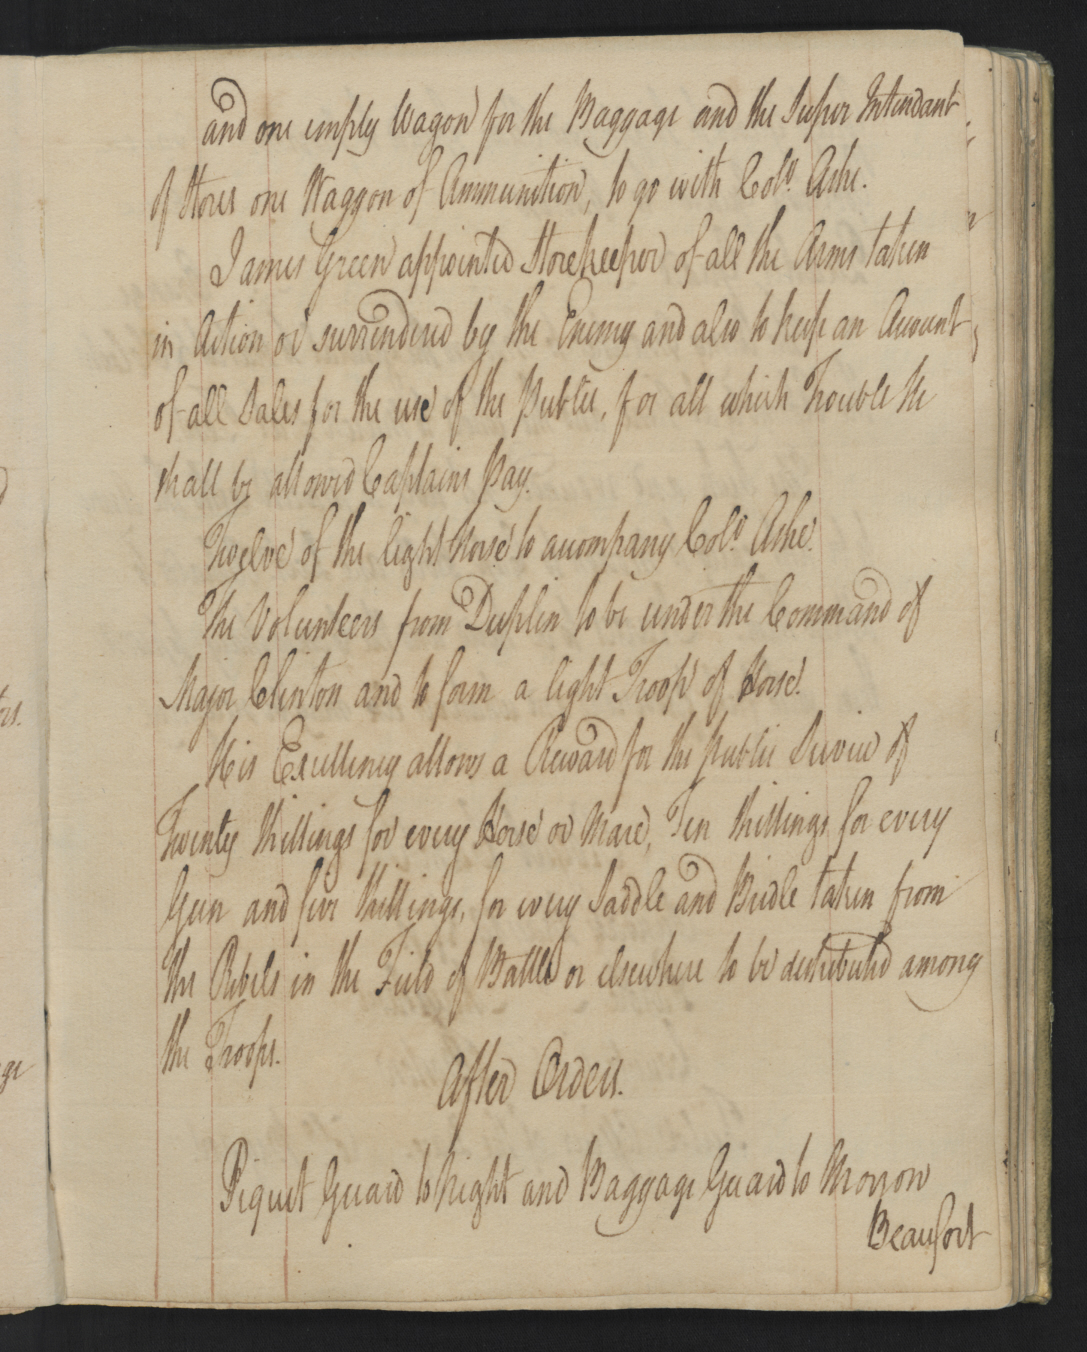 and one empty Wagon for the Baggage and the Super Intendant
of Stores one Waggon of Ammunition, to go with Colo. Ashe.
James Green appointed Storekeeper of all the Arms taken
in Action or surrendered by the Enemy and also to keep an Account
of all Sales for the use of the Public, for all which Trouble he
shall be allowed Captains Pay.
Twelve of the light Horse to accompany Colo. Ashe.
The Volunteers from Duplin to be under the Command of
Major Clinton and to form a light Troop of Horse.
His Excellency allows a Reward for the public Service of
Twenty Shillings for every Horse or Mare, Ten Shillings for every
Gun and five Shillings, for every Saddle and Bridle taken from
the Rebels in the Field of Battle or elsewhere to be distributed among
the Troops.
After Orders.
Piquet Guard to Night and Baggage Guard to Morrow
Beaufort